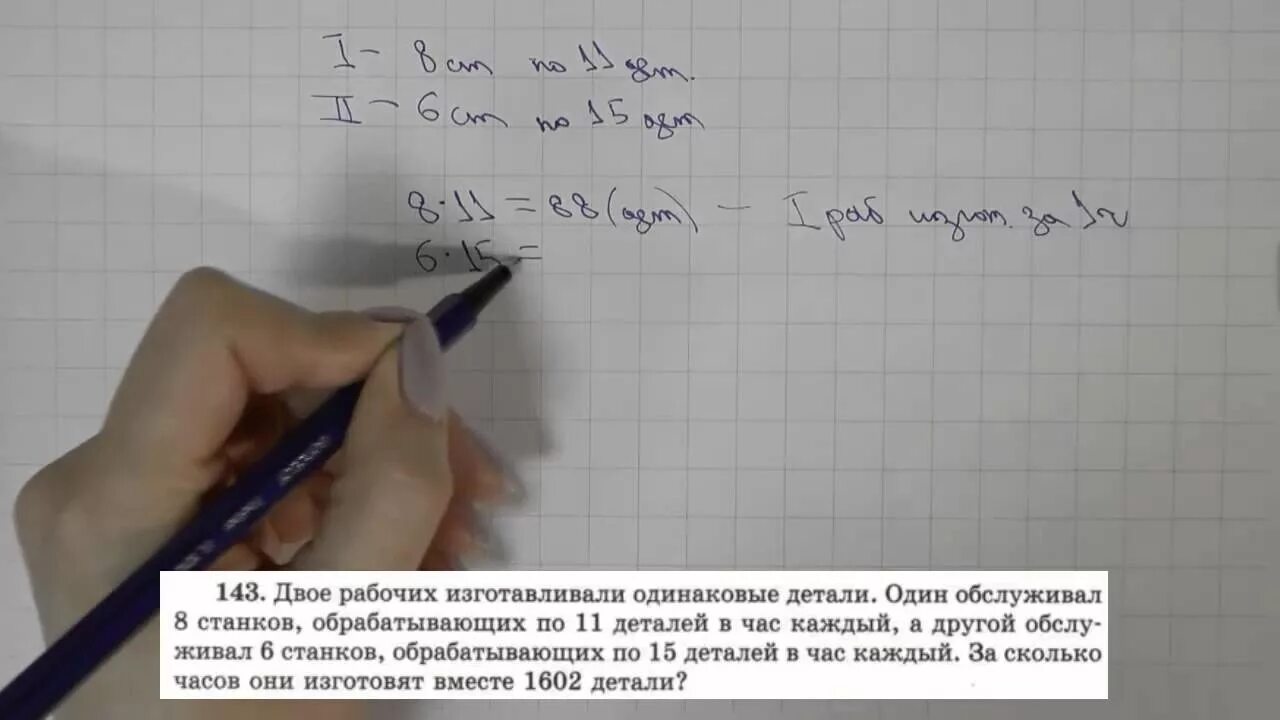 I – 8 ст по 11 дет.
II – 6 ст по 15 дет
8·11 = 88 (дет) – I раб изгот. за 1ч
6·15 =
143. Двое рабочих изготавливали одинаковые детали. Один обслуживал
8 станков, обрабатывающих по 11 деталей в час каждый, а другой обслу-
живал 6 станков, обрабатывающих по 15 деталей в час каждый. За сколько
часов они изготовят вместе 1602 детали?